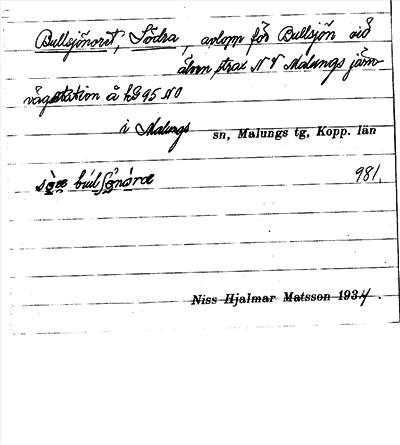 Bullsjönoret, Södra, avlopp för Bullsjön vid
älven strax N V Malungs järn-
vägsstation å hs 95 NO
i Malungs sn, Malungs tg, Kopp. län
981.
Niss Hjalmar Matsson 1934.